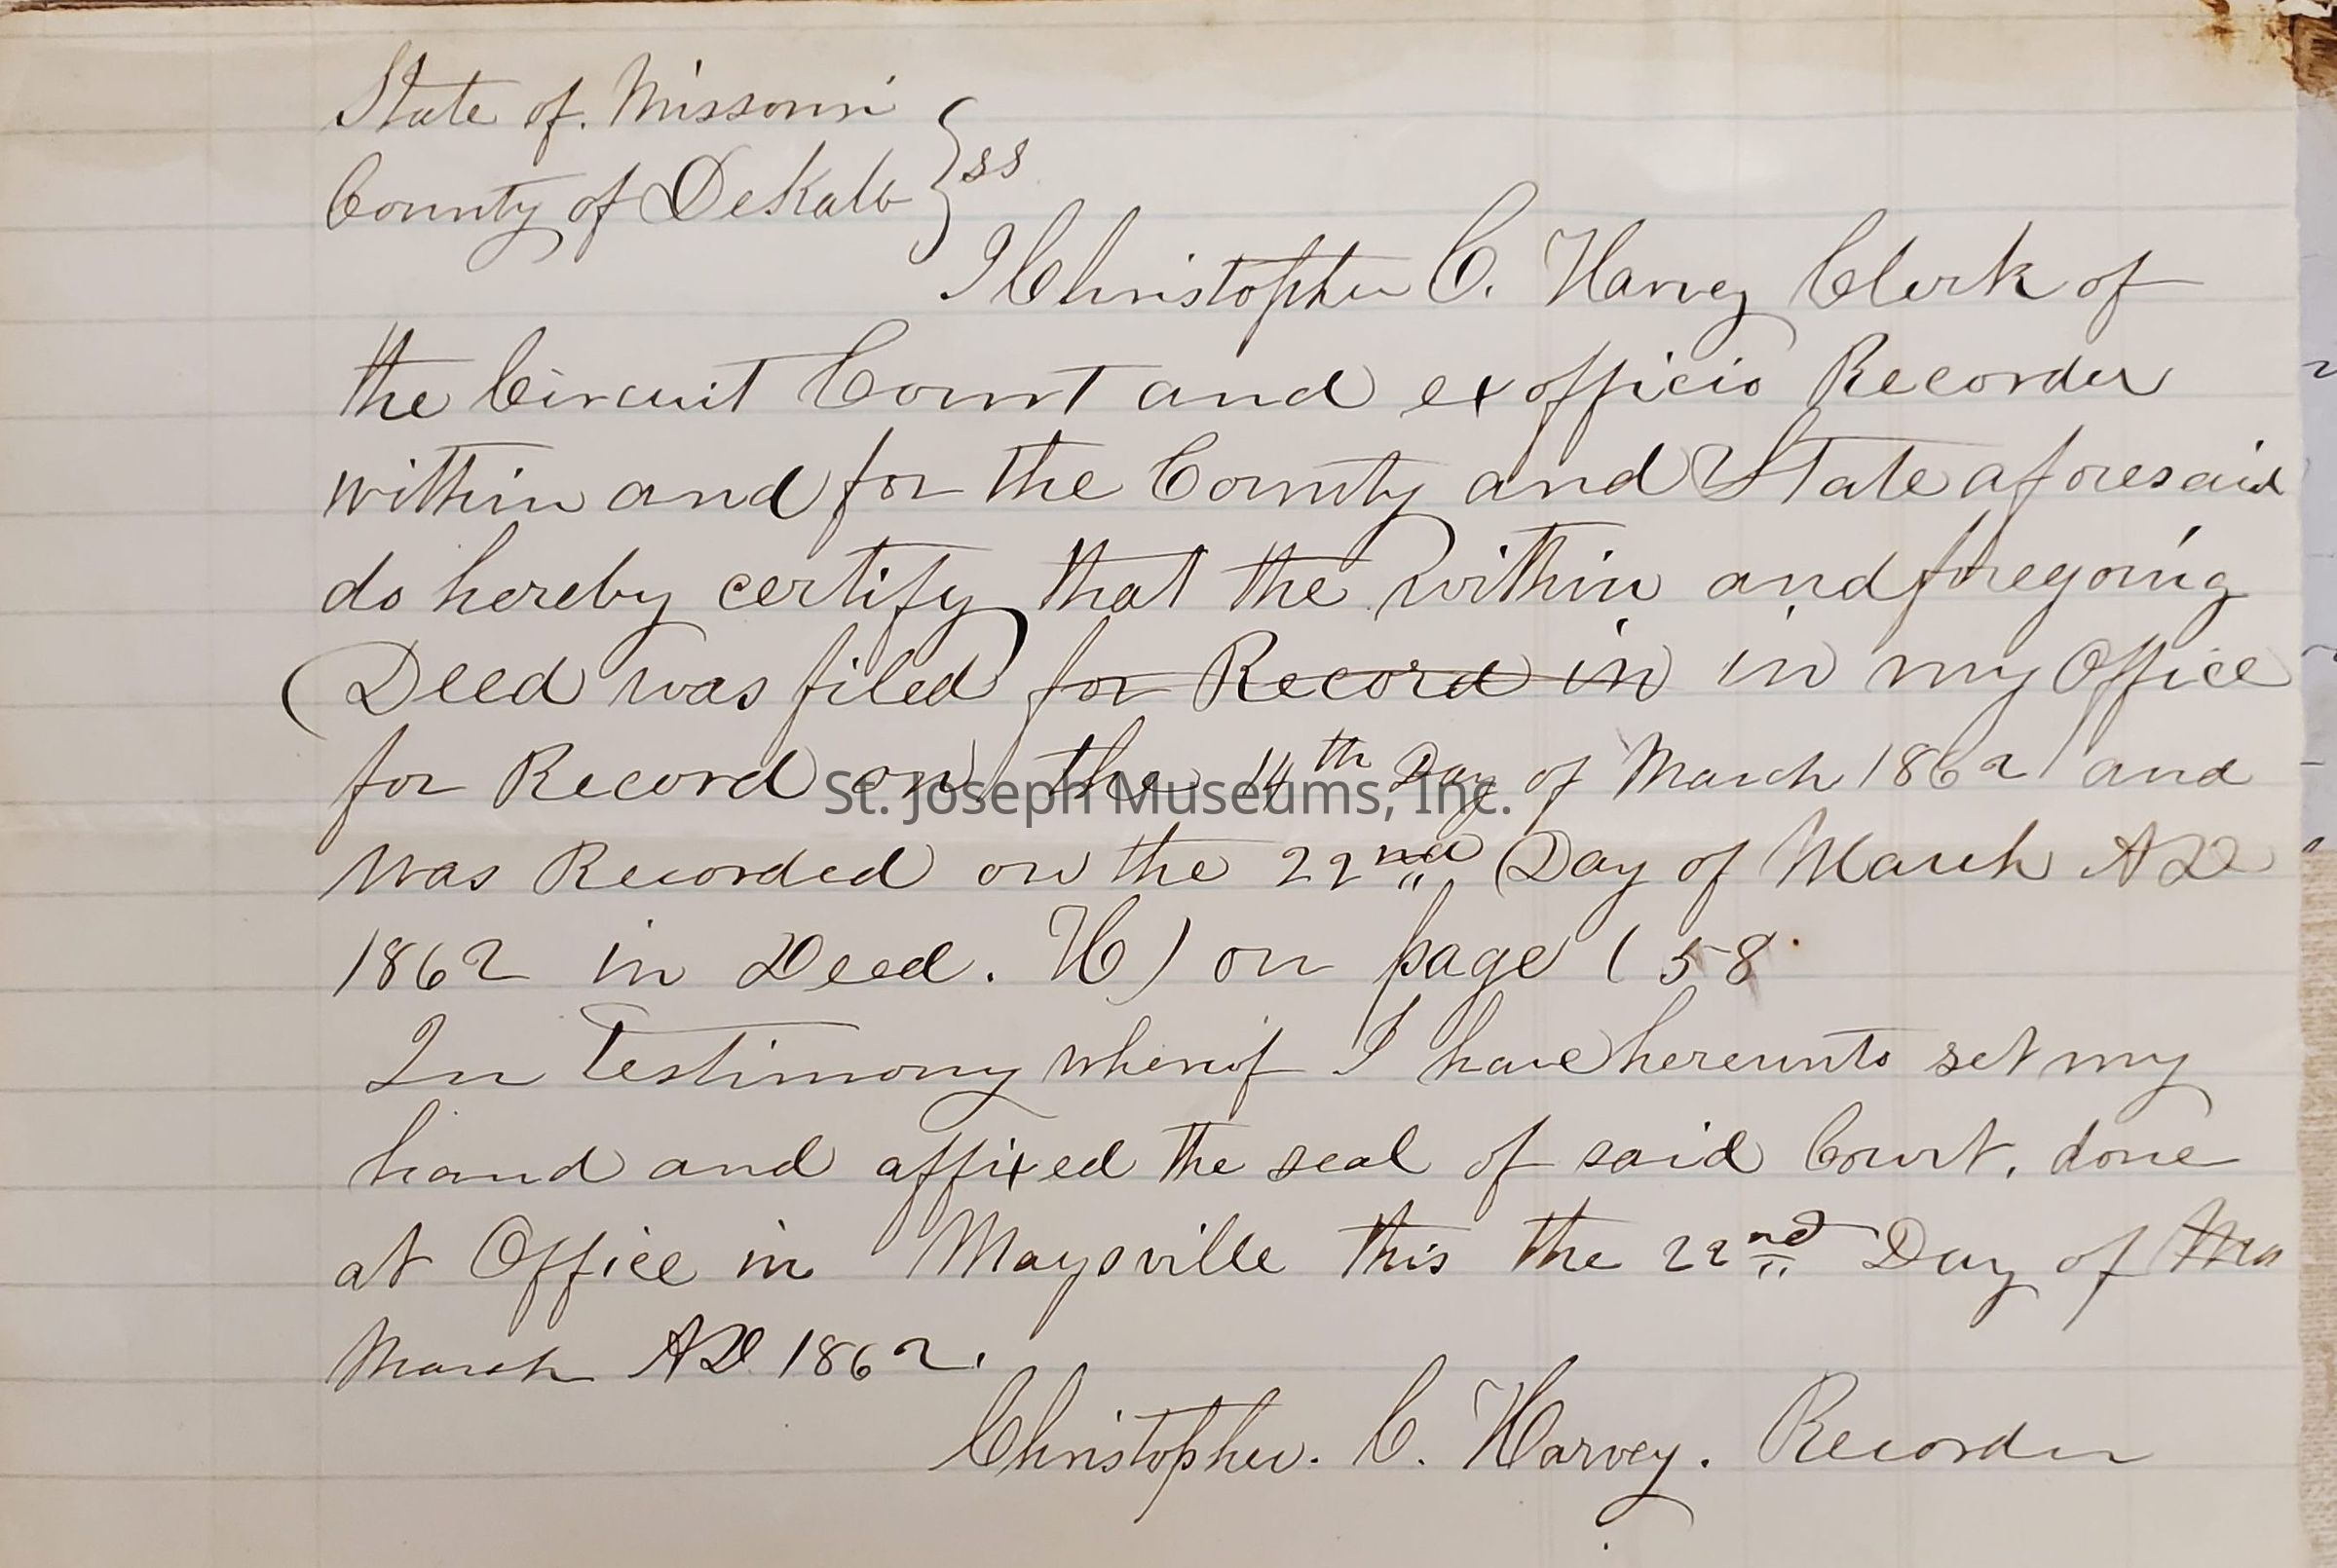 State of. Missouri
County of DeKalb } ss
I Christopher C. Harvey Clerk of
the Circuit Court and exofficio Recorder
within and for the County and State aforesaid
do hereby certify that the within and foregoing
Deed was filed for Record in in my Office
for Record on the 14th Day of March 1862 and
St. Joseph Museums, Inc.
was Recorded on the 22nd Day of March AD
1862 in Deed. H) on page (58
In Testimony whereof I have hereunto set my
hand and affixed the seal of said Court. done
at Office in Maysville this the 22nd Day of Ma
March AD 1862.
Christopher. C. Harvey. Recorder